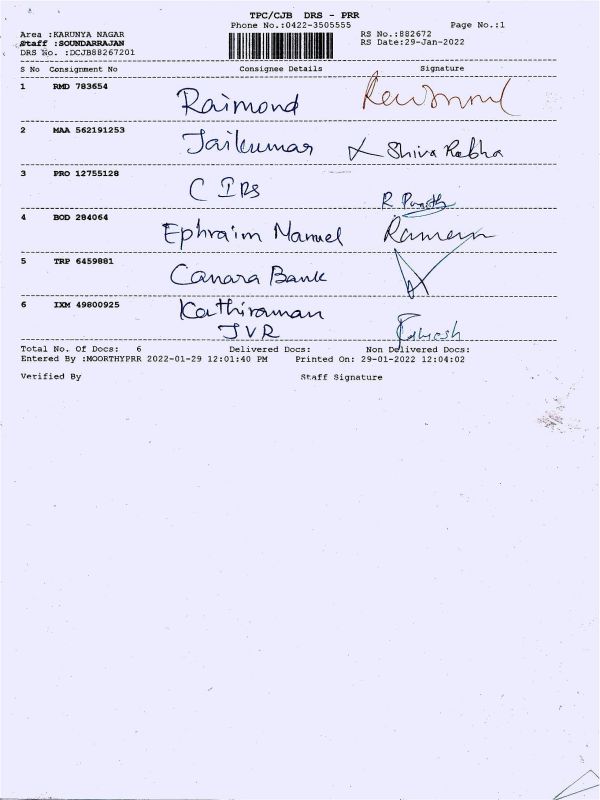 TPC/CJB DRS - PRR
Phone No.:0422-3505555 Page No.:1
Area :KARUNYA NAGAR RS No.:882672
Staff :SOUNDARRAJAN RS Date:29-Jan-2022
DRS No. :DCJB88267201
S No Consignment No Consignee Details Signature
1 RMD 783654 Raimond
2 MAA 562191253 Jaikumar Shiva Rabha
3 PRO 12755128 C IRS
4 BOD 284064 Ephraim Manuel
5 TRP 6459881 Canara Bank
6 IXM 49800925 Kathiraman
JVR
Total No. Of Docs: 6 Delivered Docs: Non Delivered Docs:
Entered By :MOORTHYPRR 2022-01-29 12:01:40 PM Printed On: 29-01-2022 12:04:02
Verified By Staff Signature